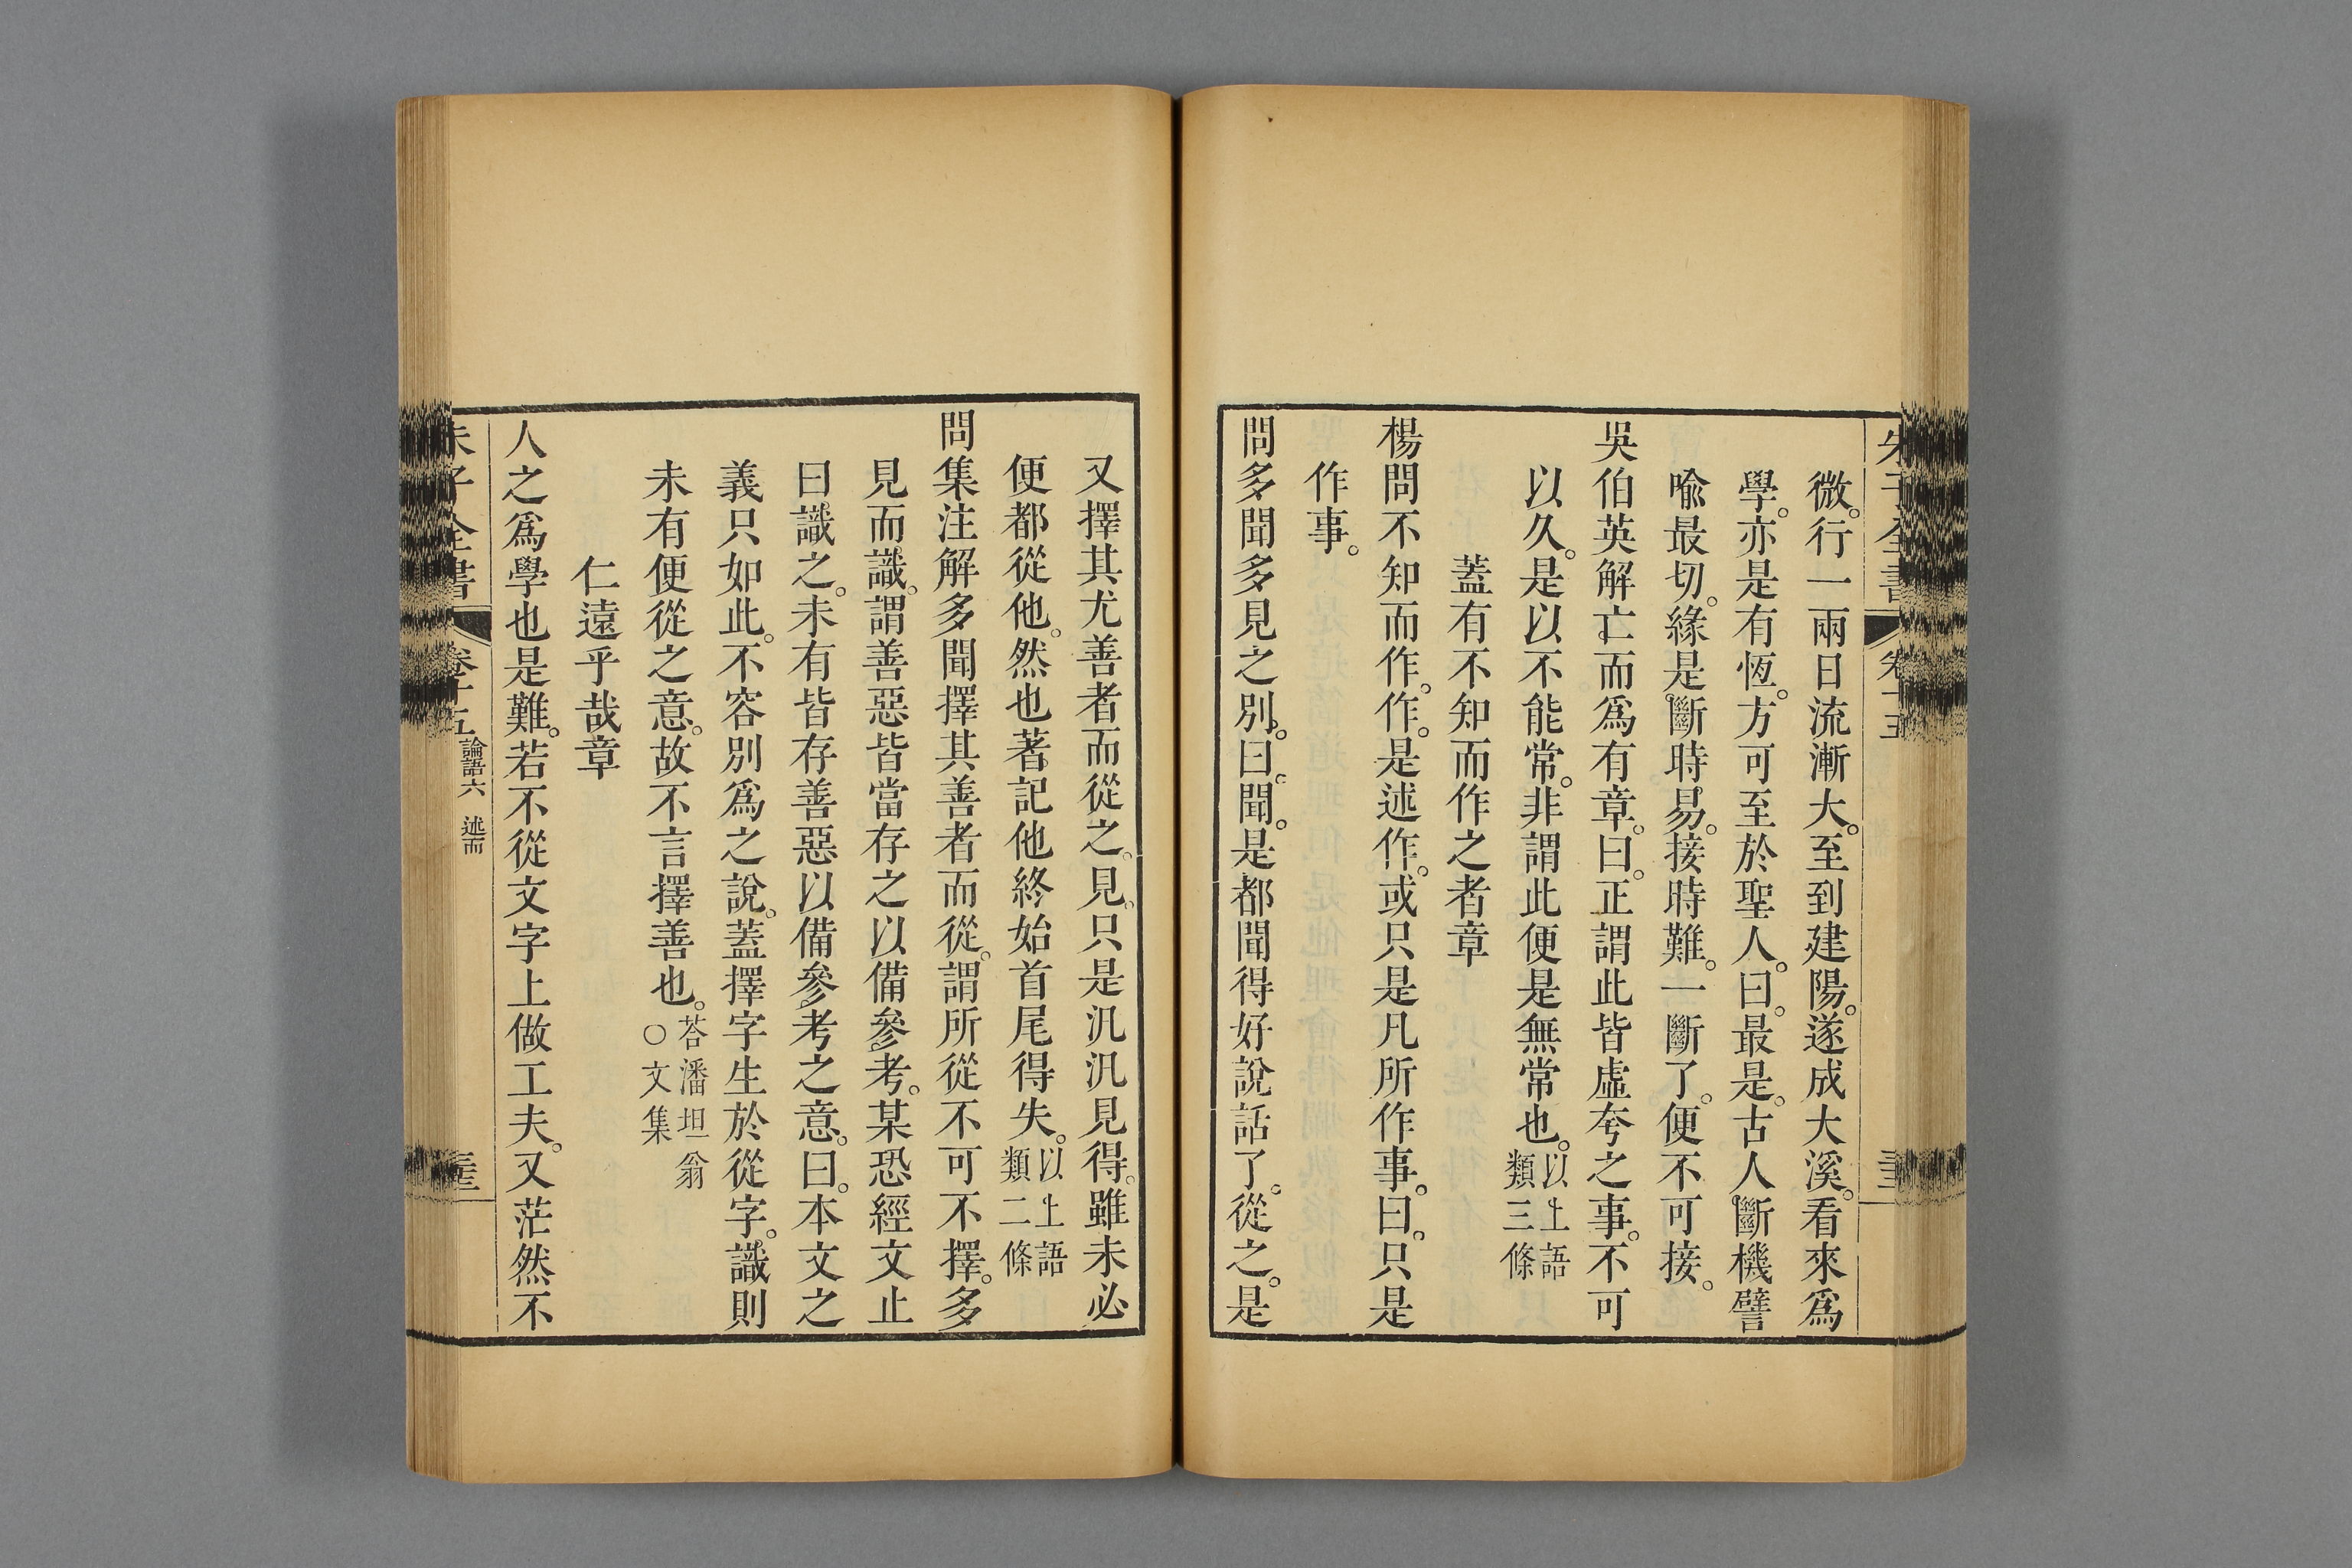 微。行一兩日流漸大。至到建陽。遂成大溪。看來爲
學。亦是有恆。方可至於聖人。曰。最是。古人斷機譬
喻最切。緣是斷時易。接時難。一斷了。便不可接。
吳伯英解亡而爲有章。曰。正謂此皆虛夸之事。不可
以久。是以不能常。非謂此便是無常也。以上語類三條
蓋有不知而作之者章
楊問不知而作。作。是述作。或只是凡所作事。曰。只是
作事。
問多聞多見之別。曰。聞。是都聞得好說話了。從之。是
又擇其尤善者而從之。見。只是汎汎見得。雖未必
便都從他。然也著記他終始首尾得失。以上語類二條
問集注解多聞擇其善者而從。謂所從不可不擇。多
見而識。謂善惡皆當存之以備參考。某恐經文止
曰識之。未有皆存善惡以備參考之意。曰。本文之
義只如此。不容別爲之說。蓋擇字生於從字。識則
未有便從之意。故不言擇善也。荅潘坦翁○文集
仁遠乎哉章
人之爲學也是難。若不從文字上做工夫。又茫然不
朱子全書 卷十五 論語六 述而